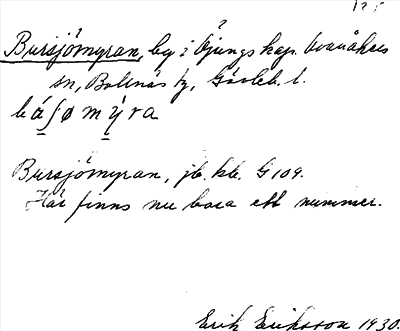 Bursjömyran, by i Öjungs kap. Ovanåkers
sn, Bollnäs tg, Gävleb. l.
bá∫ømýra
Bursjömyran, jb. kb. G 109.
Här finns nu bara ett nummer.
Erik Eriksson 1930.